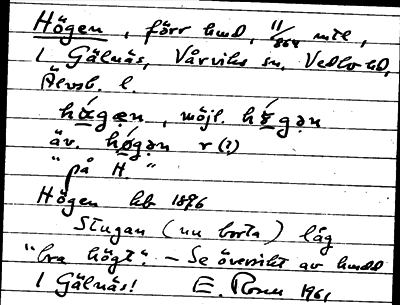 Högen, förr hmd, 11/864 mtl,
1 Gälnäs, Vårviks sn, Vedbo hd,
Älvsb. l.
hǿgæn, möjl. hǿgən
äv. hǿgən r (?)
"på H."
Högen lht 1896
Stugan (nu borta) låg
"bra högt". – Se översikt av hmdd
1 Gälnäs! E. 1961